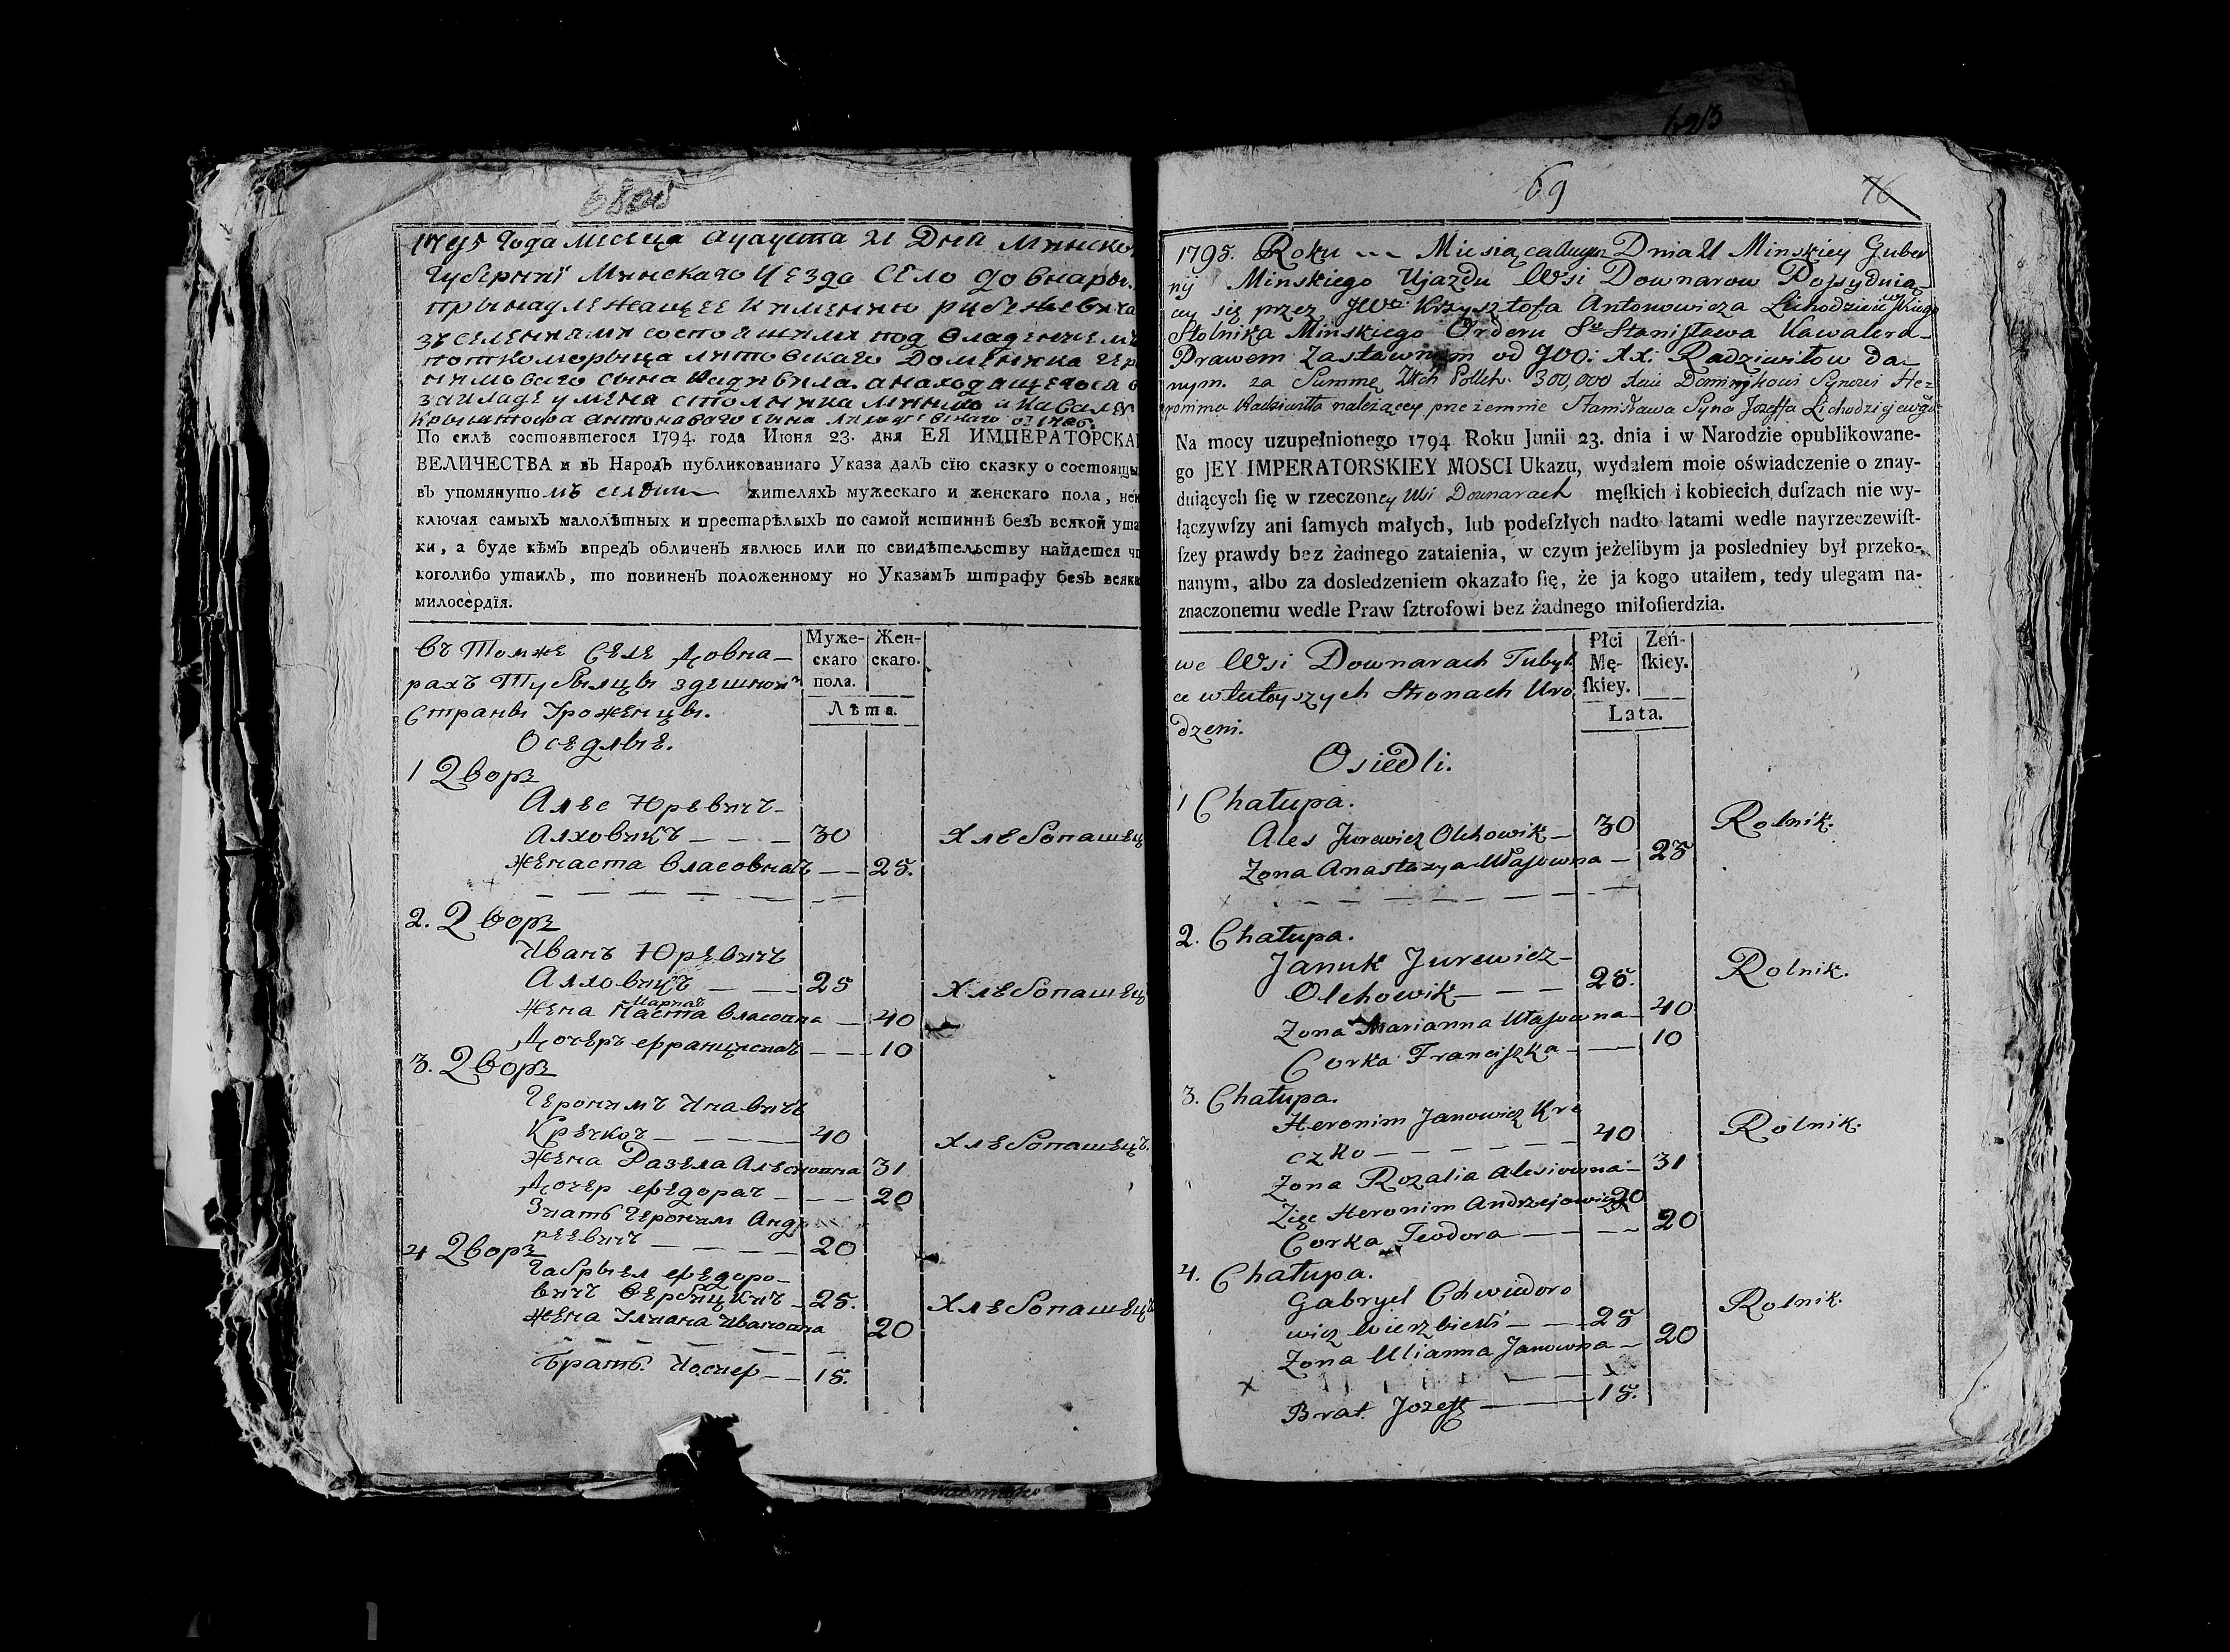 1795 Года Месеца Аугуста 21 Дня Минско
Губернии Минскаго Уезда Село Довнары
принадлежащее к имению
зъ селениями состоящими под владением
литовскаго Доминика
сына а находящегося
у меня столника и
Антоноваго сына
По силѣ состоявшегося 1794. года Июня 23. дня ЕЯ ИМПЕРАТОРСКА
ВЕЛИЧЕСТВА и въ Народъ публикованнаго Указа далъ сїю сказку о состоящи
въ упомянутомъ жителяхъ мужескаго и женскаго пола, неи
ключая самыхъ малолѣтныхъ и престарѣлыхъ по самой истиннѣ безъ всякой ута
ки, а буде кѣмъ впредъ обличенъ явлюсь или по свидѣтельству найдется чт
коголибо утаилъ, то повиненъ положенному по Указамъ штрафу безъ всяка
милосердїя.
Муже- Жен-
скаго скаго.
пола.
Лѣта.
въ Томже Селе Довна-
рахъ Тубылцы здешной
Страны Уроженцы.
Оседлые.
1 Дворъ
Алес Юревичъ
Алховикъ - - - 30 Хлебопашец
Жена Наста Власовна - - 25.
2. Дворъ
Иванъ Юревичъ
Алховикъ - - - 25 Хлебопашец
Марна
Жена Наста Власовна - 40
Дочеръ Францишка - - - 10
3. Дворъ
Геронимъ Инавичъ
Кречко - - - - 40 Хлебопашецъ.
Жена Разеля Алесиовна 31
Дочер Федора - - - 20
Зчать Героним Анд
реевич - - - - 20
4 Дворъ
Габрыел Федоро-
вичъ Вербицкий - 25. Хлебопашецъ
Жена Улиана Ивановна 20
Братъ Иосиф - - 15.
69 76
1795. Roku --- Miesiąca Augus. Dnia 21 Minskiey Guber
nij Minskiego Ujazdu Wsi Downarow Possydnią-
cey się przez JWo Krzysztofa Antonowicza Lichodziewskiego
Stolnika Minskiego Orderu So Stanisława Kawalera-
Prawem Zastawnym od JWo: XX: Radziwiłow da-
nym. za Summę Złłch Polsch. 300,000 Dominikowi Synowi He-
ronima Radziwiłła należącey przezemnie Stanisława Syna Jozeffa Lichodziejewsgo
Na mocy uzupełnionego 1794 Roku Junii 23. dnia i w Narodzie opublikowane-
go JEY IMPERATORSKIEY MOSCI Ukazu, wydałem moie oświadczenie o znay-
duiących ſię w rzeczoney Wsi Downarach męſkich i kobiecich duſzach nie wy-
łączywſzy ani ſamych małych, lub podeſzłych nadto latami wedle nayrzeczewiſt-
ſzey prawdy bez żadnego zataienia, w czym jeżelibym ja posledniey był przeko-
nanym, albo za dosledzeniem okazało ſię, że ja kogo utaiłem, tedy ulegam na-
znaczonemu wedle Praw ſztrofowi bez żadnego miłoſierdzia.
Płci Zeń-
Mę- ſkiey.
ſkiey.
Lata.
we Wsi Downarach Tubyl
ce w tutoyszych Stronach Uro
dzeni.
Osiedli.
1 Chałupa.
Ales Jurewicz Olchowik - 30 Rolnik.
Zona Anastazya Własowna - 25
2. Chałupa.
Januk Jurewicz-
Olchowik - - - 25. Rolnik.
Zona Marianna Własowna - 40
Corka Franciszka - - 10
3. Chałupa.
Heronim Janowicz Kre
czko - - - - - 40 Rolnik.
Zona Rozalia Alesiowna - 31
Zięc Heronim Andrzejowicz 20
Corka Teodora - - - 20
4. Chałupa.
Gabryel Chwiedoro
wicz Wierzbicki - - 25 Rolnik.
Zona Ulianna Janowna - 20
x
Brat. Jozeff - - - 15.